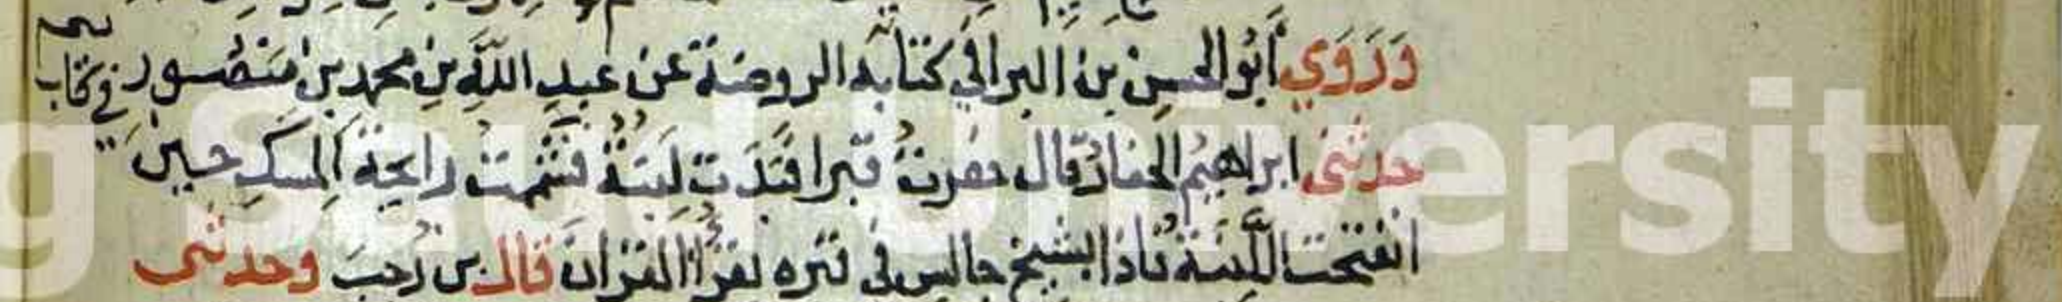 وَرَوَي أبُو الحسن بن البرا في كتابه الروضة عن عبد الله بن محمد بن منصور في كتاب
حدثني ابراهيم الحفار قال حفرت قبرا فبدت لبنة فشممت رايحة المسك حين
انفتحت اللبنة فاذا بشيخ جالس في قبره يقرأ القران قال بن رجب وحدثني
g Saud University